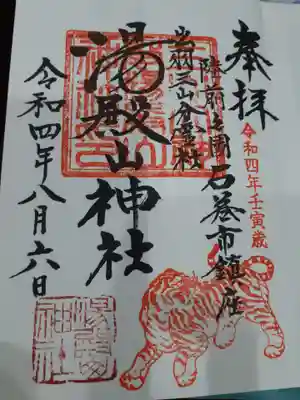 奉拝
令和四年壬寅歳
陸前之國石巻市鎮座
出羽三山分霊社
湯殿山神社
令和四年八月六日
湯殿山神社